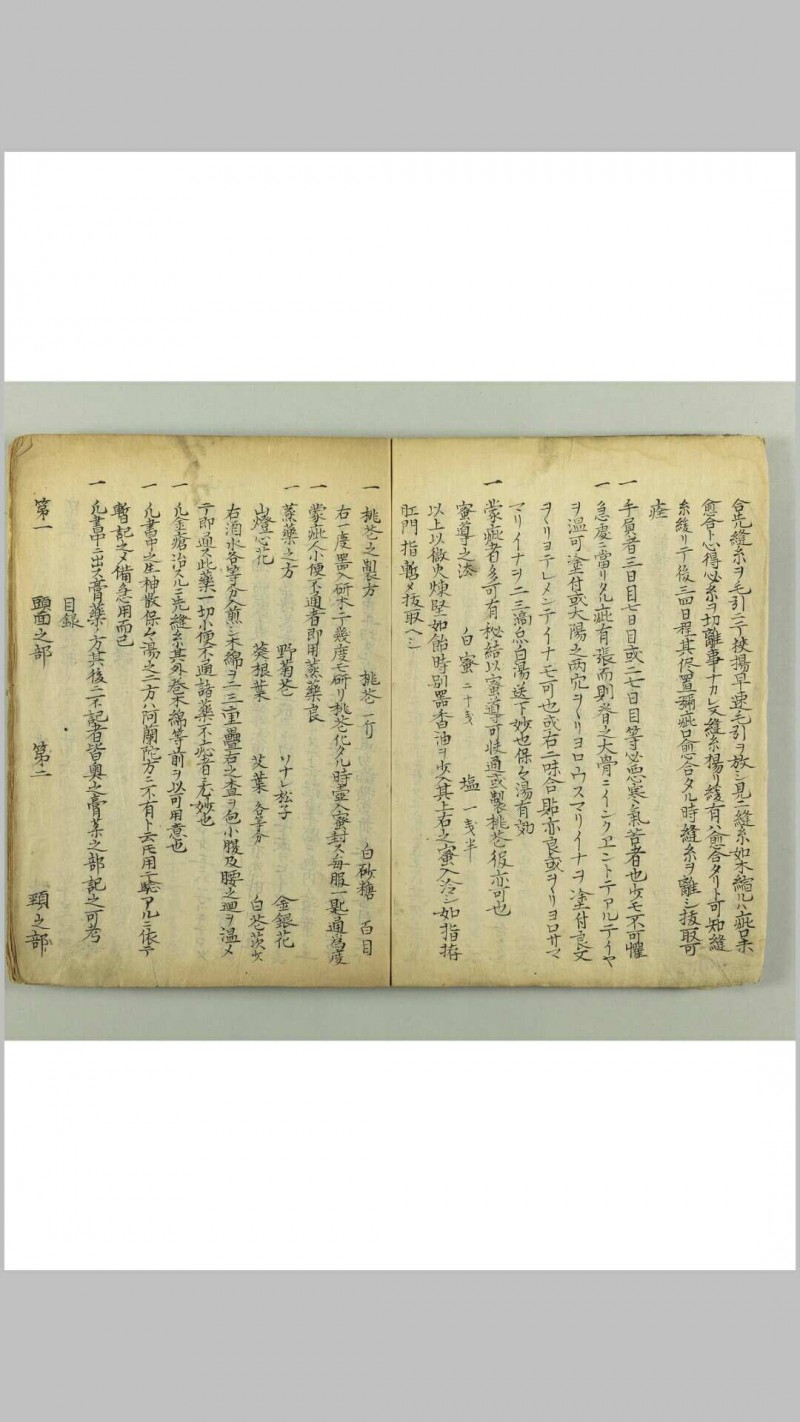 合先縫糸ヲ毛引ニテ挾揚早速毛引ヲ放シ見ニ縫糸如木縮ルハ疵口未
愈合ト心得必糸ヲ切離事ナカレ又縫糸揚リ緩有ハ愈合タリト可知縫
糸緩リテ後三四日程其侭置彌疵口愈合タル時縫糸ヲ離シ抜取可
一 手負者三日目七日目或二七日目等必悪寒シ氣苦者也少モ不可懼
一 急慶ニ當リタル疵有張而則脊之大骨ニインクヱントテアルテイヤ
ヲ温可塗付或大陽之両穴ヲヽリヨロウスマリイナヲ塗付良又
ヲヽリヨテレメンテイナモ可也或右二味合貼亦良或ヲヽリヨロサマ
マリイナヲ二三滴点白湯送下妙也保心湯有効
一 蒙疵者多可有秘結以蜜導可快通或製桃花服亦可也
蜜導之法 白蜜 二十戔 塩 一戔半
以上以微火煉堅如飴時別器香油ヲ少入其上右之蜜入冷シ如指拵
肛門指暫メ抜取ヘシ
一 桃花之製方 桃花 一斤 白砂糖 百目
右一度器入研木ニテ幾度モ研リ桃花化タル時壷入蜜封ス毎服一匙通為度
一 蒙疵人小便不通者即用蒸薬良
一 蒸薬之方 野菊花 ソナレ松子 金銀花
山燈心花 葵根葉 艾葉 各等分 白花茨 少
右酒水各等分入煎シ木綿ヲ二三重疊右之査ヲ包小腹及腰之廻ヲ温メ
テ即通ス此薬一切小便不通諸薬不応者尤妙也
一 凡金瘡治スルニ先縫糸其外巻木綿等前ヲ以可用意也
一 凡書中之生神散保心湯之二方ハ阿蘭陀方ニ不有ト云氏用テ驗アルニ依テ
暫記之メ備急用而已
一 凡書中ニ出ス膏薬ノ方其後ニ不記者皆奥之膏薬之部記之可考
目録
第一 頭面之部 第二 頸之部